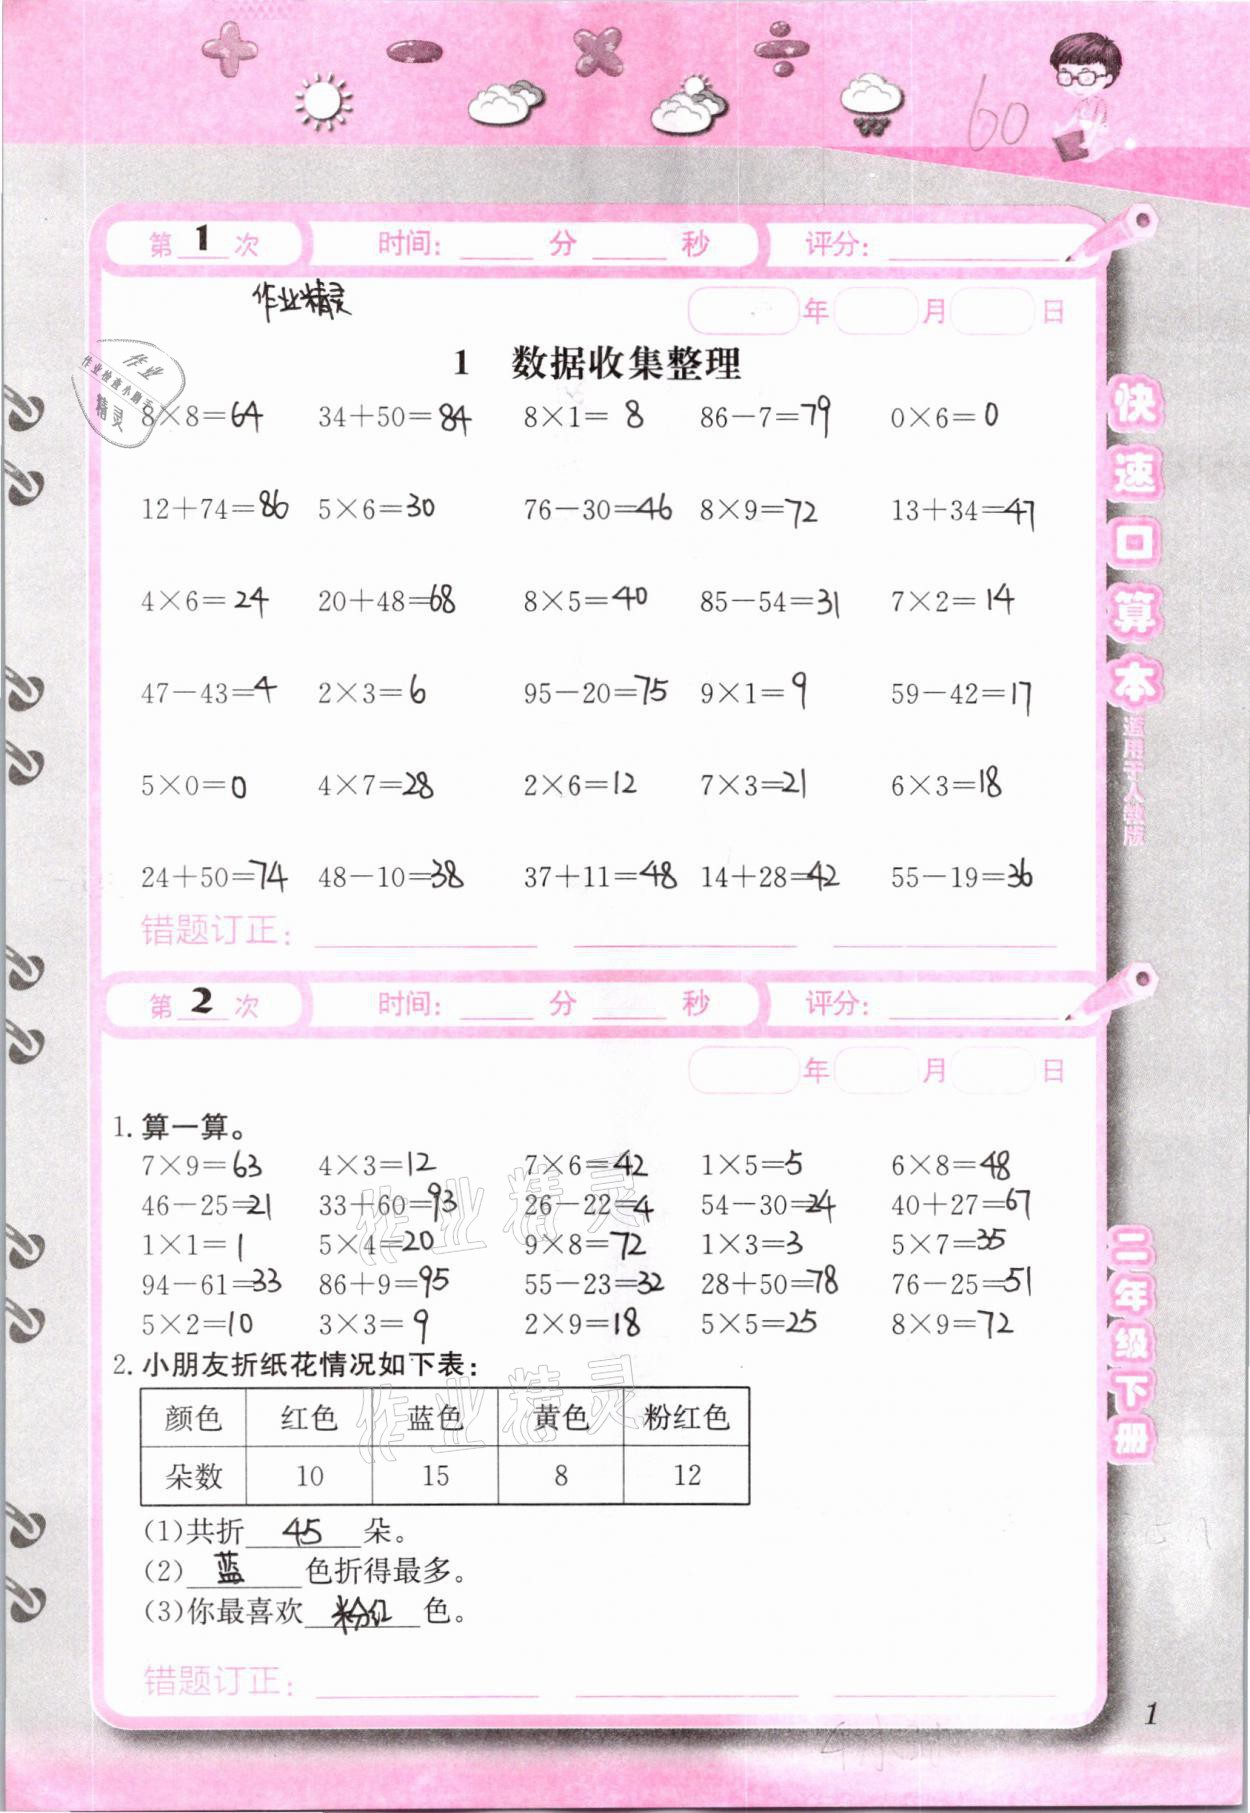 60
第 1 次 时间: 分 秒 评分:
作业精灵
年 月 日
作业
作业检查小助手
精灵
1 数据收集整理
8×8=64 34+50=84 8×1=8 86-7=79 0×6=0
12+74=86 5×6=30 76-30=46 8×9=72 13+34=47
4×6=24 20+48=68 8×5=40 85-54=31 7×2=14
47-43=4 2×3=6 95-20=75 9×1=9 59-42=17
5×0=0 4×7=28 2×6=12 7×3=21 6×3=18
24+50=74 48-10=38 37+11=48 14+28=42 55-19=36
错题订正:
第 2 次 时间: 分 秒 评分:
年 月 日
1. 算一算。
7×9=63 4×3=12 7×6=42 1×5=5 6×8=48
46-25=21 33+60=93 26-22=4 54-30=24 40+27=67
1×1=1 5×4=20 9×8=72 1×3=3 5×7=35
94-61=33 86+9=95 55-23=32 28+50=78 76-25=51
5×2=10 3×3=9 2×9=18 5×5=25 8×9=72
作业精灵
2. 小朋友折纸花情况如下表:
作业精灵
颜色 红色 蓝色 黄色 粉红色
朵数 10 15 8 12
(1)共折 45 朵。
(2) 蓝 色折得最多。
(3)你最喜欢 粉红 色。
错题订正:
快速口算本
适用于人教版
二年级下册
1